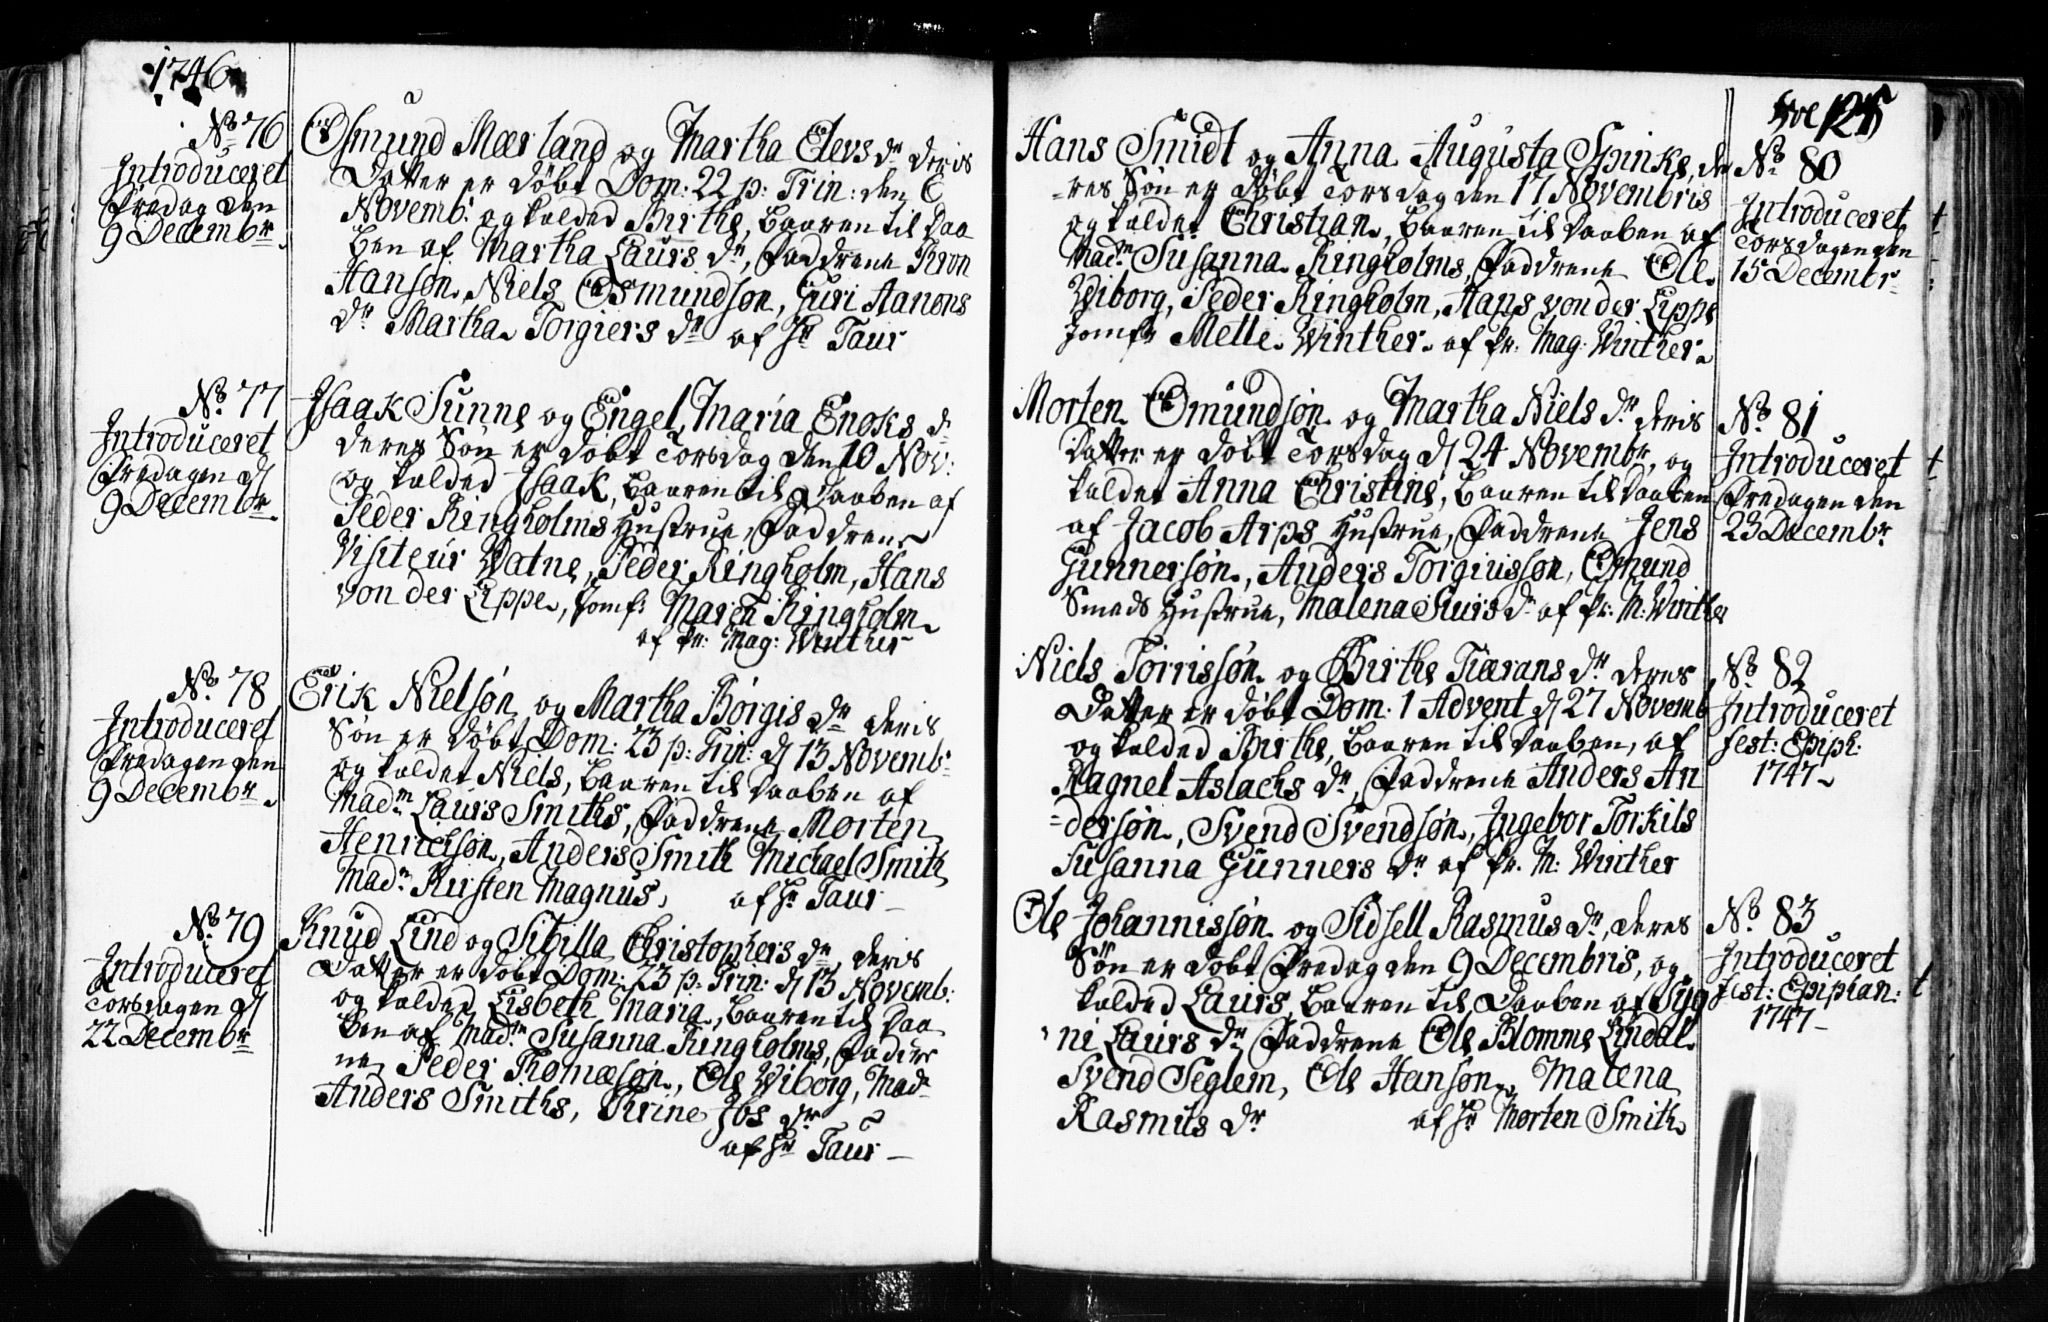 1746
No 76
Introduceret
Fredag den
9 Decembr
Osmund Mærland og Martha Elevs dr deris
Datter er døbt Dom: 22 p: Trin: den 6
Novemb: og kalded Birthe, baaren til Daa
ben af Martha Laurs dr, Faddrene Kron
Hansøn, Niels Osmundsøn, Guri Hanons
dr Martha Torgiers dr af Hr Taur
No 77
Introduceret
Fredagen d
9 Decembr
Isaak Sunne og Engel Maria Enoks d
deres Søn er døbt Torsdag den 10 Nov:
og kalded Isaak, baaren til Daaben af
Peder Ringholms Hustrue, Faddrene
Visiteur Watne, Peder Ringholm, Hans
von der Lippe, Jomf: Maren Ringholm
af Pr: Mag: Winther
No 78
Introduceret
Fredagen den
9 Decembr
Erik Nielsøn og Martha Børgis dr deris
Søn er døbt Dom: 23 p: Trin: d 13 Novemb:
og kaldet Niels, baaren til Daaben af
Madm Laurs Smiths, Faddrene Morten
Henrichsøn, Anders Smith Michael Smith
Madm Kirsten Magnus, af Hr Taur
No 79
Introduceret
Torsdagen d
22 Decembr
Knud Lind og Sibilla Christophers dr, deris
Datter er døbt Dom: 23 p: Trin: d 13 Novemb:
og kalded Lisbeth Maria, baaren til Daa
ben af Madm Susanna Ringholms, Faddre
ne Peder Thomæsøn, Ole Wiborg, Mad
Anders Smiths, Trine Jos dr
af Hr Taur
Fol 125
Hans Smidt og Anna Augusta Spinke, de
res Søn er døbt Torsdag den 17 Novembris
og kaldet Christian, baaren til Daaben af
Madm Susanna Ringholms, Faddrene Ole
Wiborg, Peder Ringholm, Hans von der Lippe
Jomfr Mette Winther af Pr: Mag: Winther
No 80
Introduceret
Torsdagen den
15 Decembr
Morten Omundsøn og Martha Niels dr deris
Datter er døbt Torsdag d 24 Novembr, og
kaldet Anna Christine, baaren til Daaben
af Jacob Arps Hustrue, Faddrene Jens
Gunnersøn, Anders Torgiussøn, Omund
Smeds Hustrue, Malena Siurs d af Pr: M: Winther
No 81
Introduceret
Fredagen den
23 Decembr
Niels Torrissøn og Birthe Tiærans dr deres
Datter er døbt Dom: 1 Advent d 27 Novemb
og kalded Birthe, baaren til Daaben, af
Ragnel Aslachs dr, Faddrene Anders An
dersøn, Svend Svendsøn, Ingebor Torkils
Susanna Gunners dr af Pr. M: Winther
No 82
Introduceret
Fest: Epiph:
1747
Ole Johannissøn og Sidsell Rasmus dr, deres
Søn er døbt Fredag den 9 Decembris, og
kalded Laurs, baaren til Daaben af Syg
ni Laurs dr, Faddrene Ole Blomme Lindal
Svend Seglem, Ole Hansøn, Malena
Rasmus dr af Hr Morten Smith
No 83
Introduceret
Fest: Epiphan:
1747